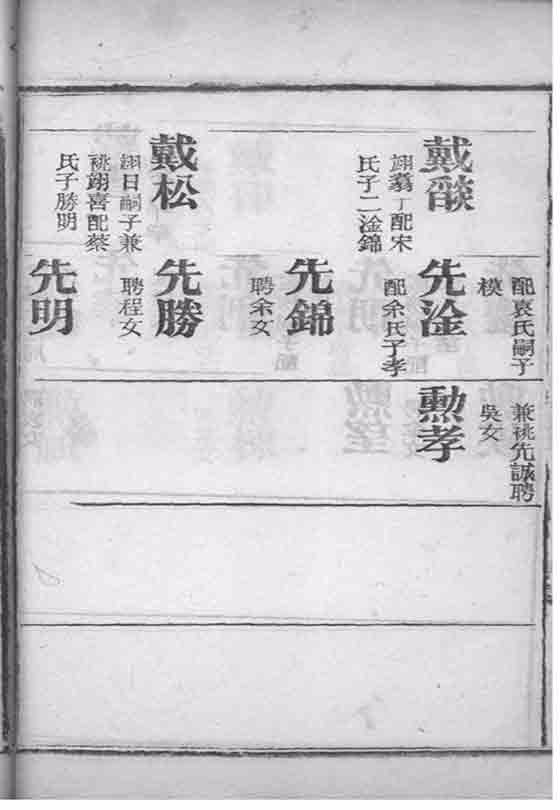 戴燄
翊羲丁配宋
氏子二淦錦
戴松
翊日嗣子兼
祧翊喜配蔡
氏子勝明
配袁氏嗣子
模
先淦
配余氏子孝
先錦
聘余女
先勝
聘程女
先明
兼祧先誠聘
吳女
勲孝